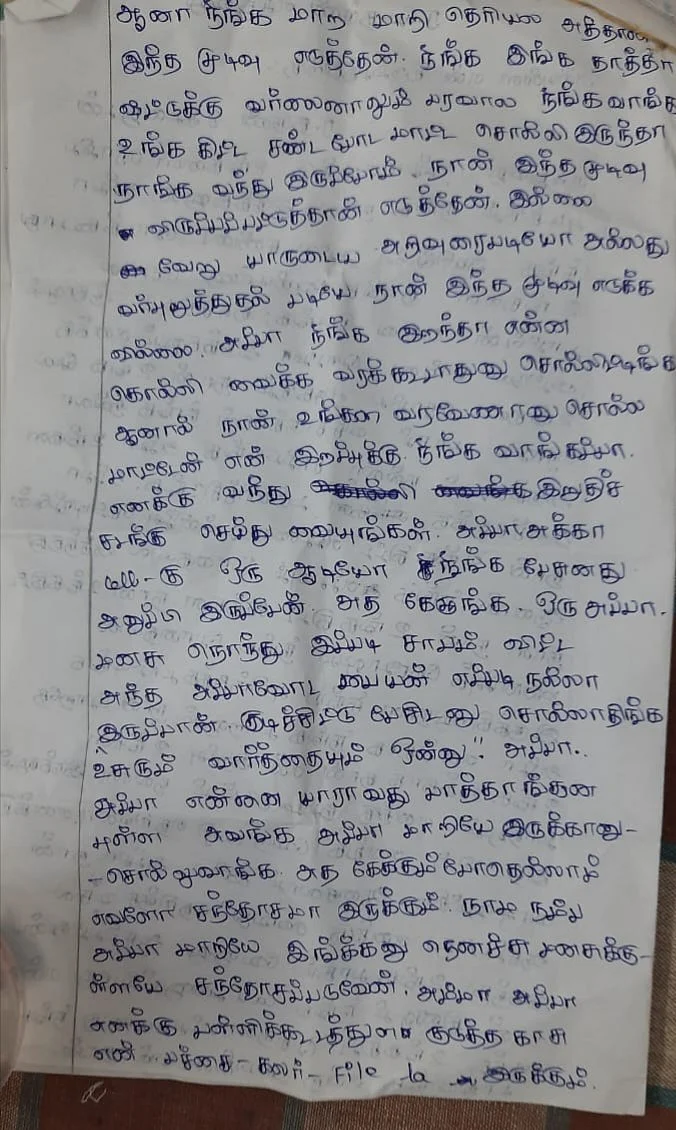 ஆனா நீங்க மாற மாறி தெரியல அத்தான்
இந்த முடிவு எடுத்தேன். நீங்க இங்க தாத்தா
வீட்டுக்கு வர்லைனாலும் பரவால நீங்க வாங்க
உங்க கிட்ட சண்ட போட மாட்ட சொல்லி இருந்தா
நாங்க வந்து இருப்போம். நான் இந்த முடிவு
விருப்பப்பட்டுத்தான் எடுத்தேன். இல்லை
வேறு யாருடைய அறிவுரைபடியோ அல்லது
வற்புறுத்துதல் படியே நான் இந்த முடிவு எடுக்க
வில்லை. அம்மா நீங்க இறந்தா என்ன
கொல்லி வைக்க வரக்கூடாதுனு சொல்லிட்டிங்க
ஆனால் நான் உங்கள வரவேணானு சொல்ல
மாட்டேன் என் இறப்புக்கு நீங்க வாங்கம்மா.
எனக்கு வந்து இறுதிச்
சடங்கு செய்து வையுங்கள். அம்மா அக்கா
cell-கு ஒரு ஆடியோ நீங்க பேசுனது
அனுப்பி இருப்பேன். அத கேளுங்க. ஒரு அம்மா.
மனசு நொந்து இப்படி சாபம் விட்ட
அந்த அம்மாவோட பையன் எப்படி நல்லா
இருப்பான். குடிச்சிட்டு பேசிட்டனு சொல்லாதிங்க
உசுரும் வார்த்தையும் ஒன்னு". அம்மா..
அம்மா என்னை யாராவது பாத்தாங்கன
புள்ள அவங்க அம்மா மாறியே இருக்கானு-
-சொல்லுவாங்க. அத கேக்கும்போதெல்லாம்
எவளோ சந்தோசமா இருக்கும். நாம நம்ம
அம்மா மாறியே இருக்கனு நெனச்சு மனசுக்கு-
ள்ளயே சந்தோசப்படுவேன். அம்மா அம்மா
எனக்கு பள்ளிக்கூடத்துல குடுத்த காசு
என் பச்சை-கலர்-File la இருக்கும்.